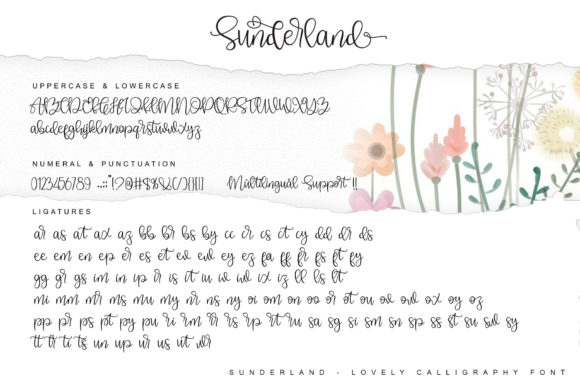 Sunderland
UPPERCASE & LOWERCASE
ABCDEFGHIJKLMNOPQRSTUVWXYZ
abcdefghijklmnopqrstuvwxyz
NUMERAL & PUNCTUATION
0123456789 ..:;"!?@#$%&()/[]{} Multilingual Support !!
LIGATURES
ar as at ax az bb br bs by cc cr cs ct cy dd dr ds
ee em en ep er es et ev ew ey ez fa ff fr fs ft fy
gg gr gs im in ip ir is it iu iv iw ix iz ll ls lt
mi mm mr ms mu my nr ns ny oi om on oo or ot ou ov ow ox oy oz
pp pr ps pt py pu ri rm rr rs rp rt ru sa sg si sm sn sp ss st su sw sy
tt tr ti ts un up ur us ut wr
SUNDERLAND - LOVELY CALLIGRAPHY FONT